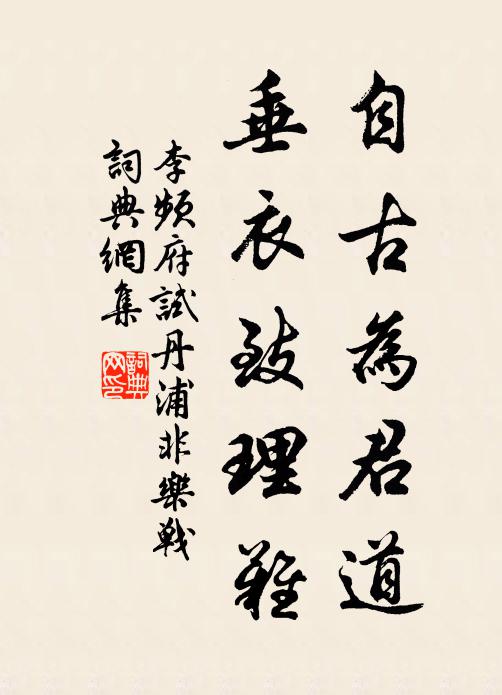 自古為君道
垂衣致理難
李頻府試丹浦非樂戰
詞典網集
詞典
网印